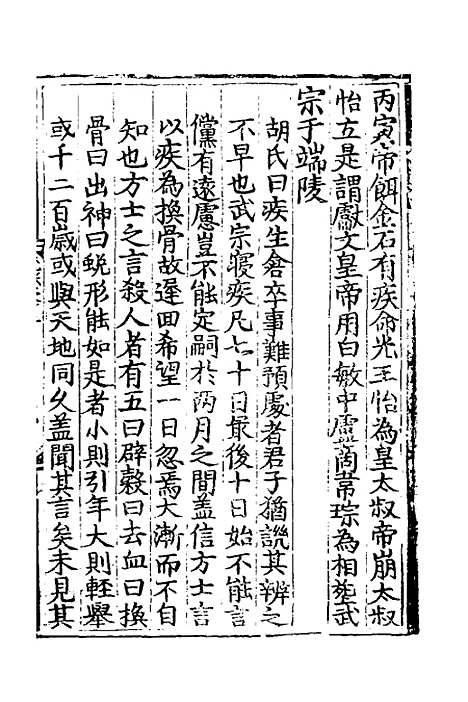 丙寅帝餌金石有疾命光王怡為皇太叔帝崩太叔
怡立是謂獻文皇帝用白敏中盧商韋琮為相葬武
宗于端陵
胡氏曰疾生倉卒事難預處者君子猶譏其辨之
不早也武宗寢疾凡七十日最後十日始不能言
儻有遠慮豈不能定嗣於兩月之間盖信方士言
以疾為換骨故遲回希望一日忽焉大漸而不自
知也方士之言殺人者有五曰辟穀曰去血曰換
骨曰出神曰蛻形能如是者小則引年大則輕舉
或千二百歲或與天地同久盖聞其言矣未見其